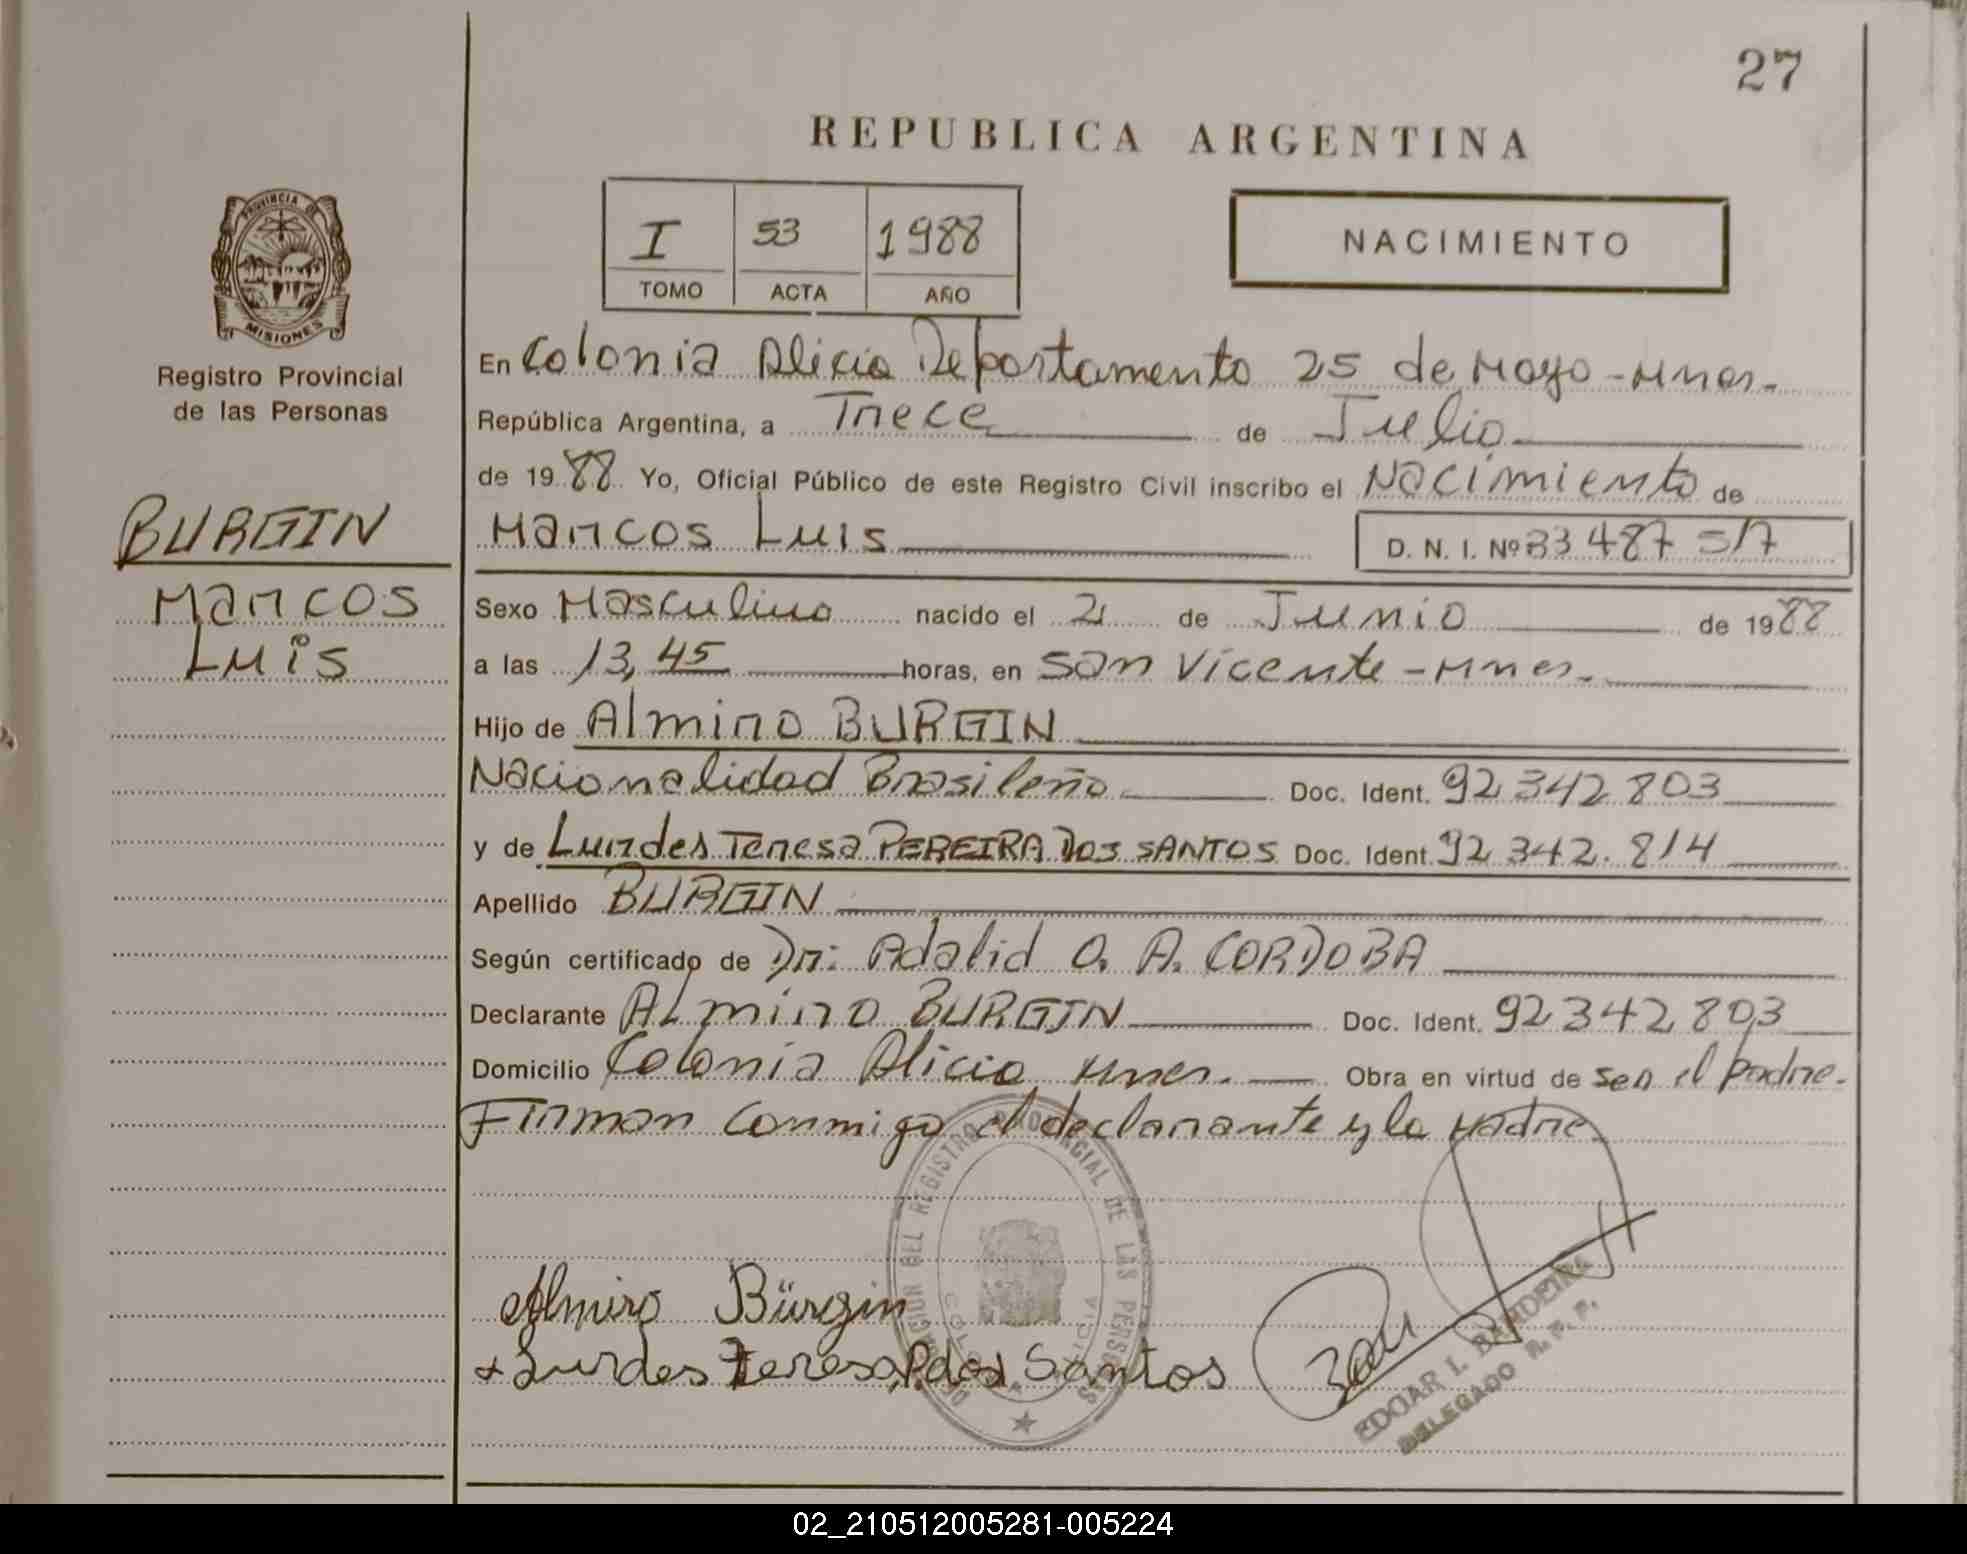 27
REPUBLICA ARGENTINA
PROVINCIA DE
MISIONES
Registro Provincial
de las Personas
I 53 1988
TOMO ACTA AÑO
NACIMIENTO
BURGIN
Marcos
Luis
En Colonia Alicia Departamento 25 de Mayo - Mnes.
República Argentina, a Trece de Julio
de 1988 Yo, Oficial Público de este Registro Civil inscribo el Nacimiento de
Marcos Luis D. N. I. Nº 33 487 517
Sexo Masculino nacido el 21 de Junio de 1988
a las 13,45 horas, en San Vicente - Mnes.
Hijo de Almiro BURGIN
Nacionalidad Brasileño Doc. Ident. 92 342 803
y de Lurdes Teresa PEREIRA DOS SANTOS Doc. Ident. 92 342.814
Apellido BURGIN
Según certificado de Dr: Adalid O. A. CORDOBA
Declarante ALmiro BURGIN Doc. Ident. 92 342 803
Domicilio Colonia Alicia, Mnes. Obra en virtud de ser el padre.
Firman conmigo el declarante y la Madre.
DELEGACION DEL REGISTRO PROVINCIAL DE LAS PERSONAS
COLONIA ALICIA
Almiro Bürgin
Lurdes Teresa P. dos Santos
EDGAR I. BANDEIRA
DELEGADO R. P. P.
02_210512005281-005224